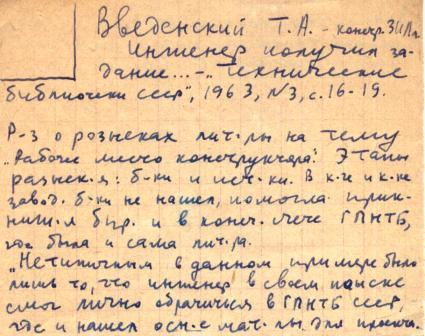 Введенский Т. А. - констр. ЗИЛа
Инженер получил за-
дание... - "Технические
библиотеки СССР", 1963, №3, с. 16-19.
Р-з о розысках лит-ры на тему
"Рабочее место конструктора". Этапы
разыск-я: б-ки и ист-ки. В к-ге и к-ке
завод. б-ки не нашел, помогла
и в конеч. счете ГПНТБ,
где была и сама лит-ра.
"Нетипичным в данном примере было
лишь то, что инженер в своем поиске
смог лично обратиться в ГПНТБ СССР,
где и нашел осн-е мат-лы для проекта.